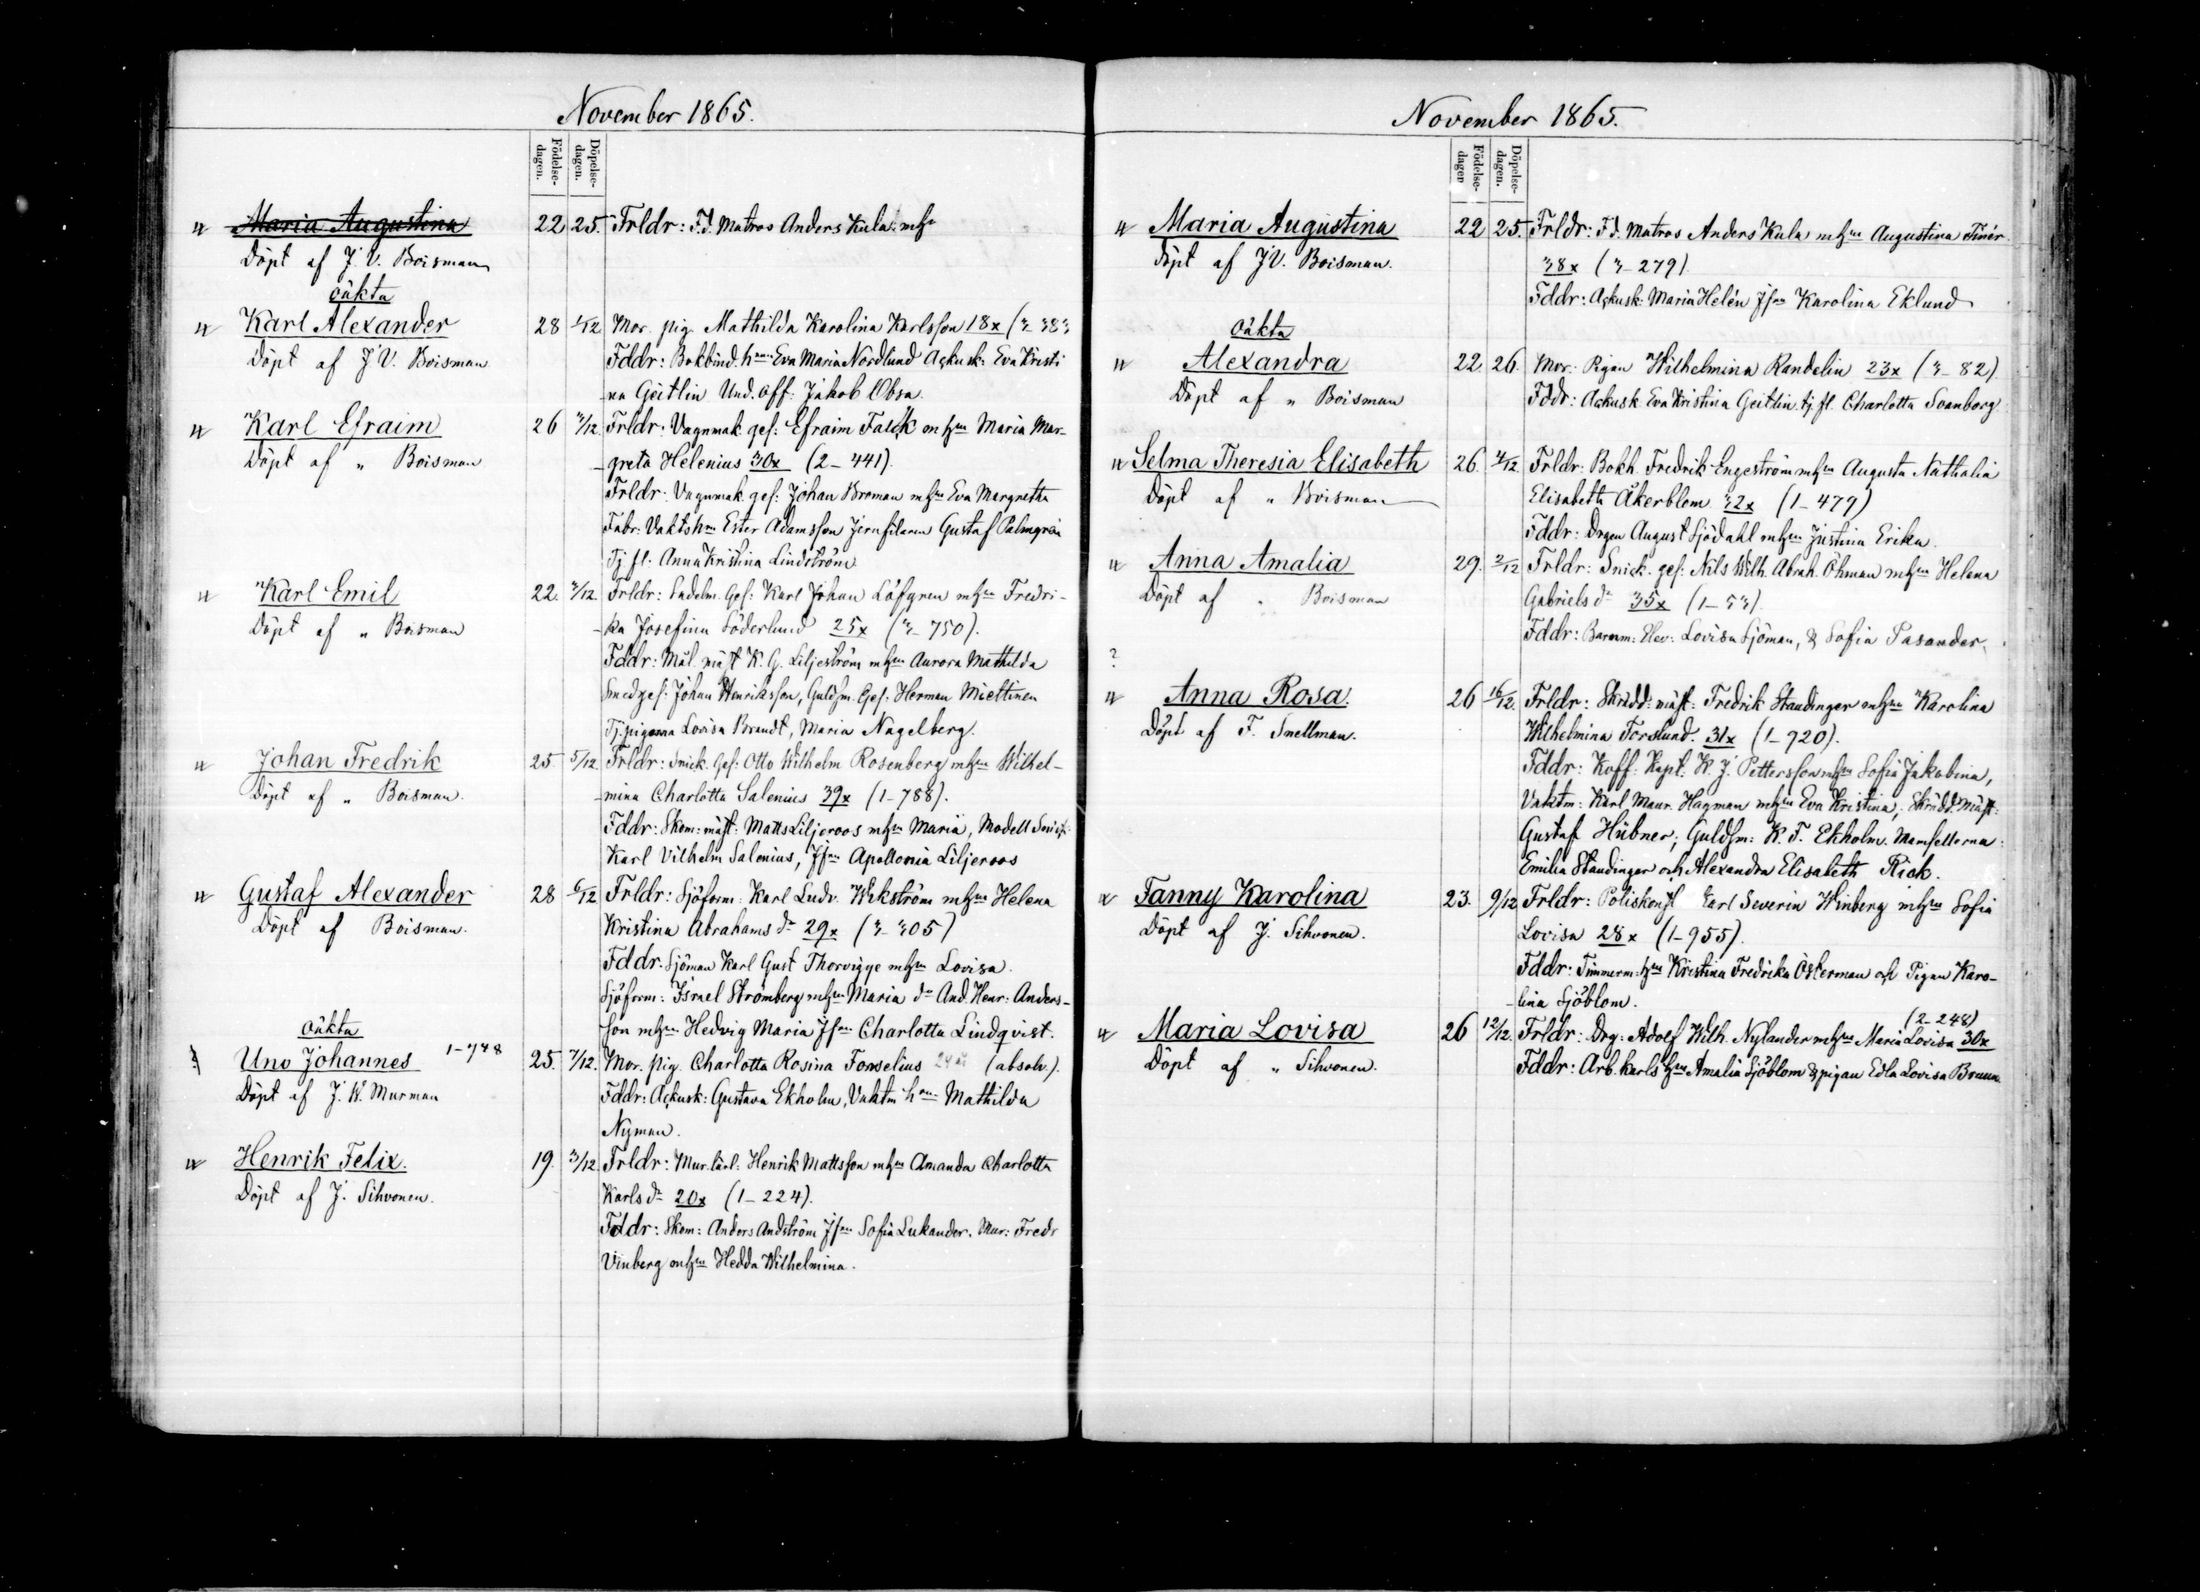 November 1865.
Födelse-
dagen.
Döpelse-
dagen.
Maria Augustina 22 25. Frldr: F.d. Matros Anders Kula mhu
Döpt af J. V. Boisman
oäkta
Karl Alexander 28 1/12 Mor. pig. Mathilda Karolina Karlsson 18x (3 383
Döpt af J. V. Boisman Fddr: Bokbind. hrun Eva Maria Nordlund Ackusk: Eva Kristi
na Geitlin Und. off: Jakob Obsa.
Karl Efraim 26 3/12. Frldr: Vagnmak. ges: Efraim Falck mhu Maria Mar-
Döpt af „ Boisman greta Helenius 30x (2-441).
Frldr: Vagnmak. ges: Johan Broman mhu Eva Margretha
Fabr: Vaktshu Ester Adamsson Jernfilaren Gustaf Palmgren
Tj. fl. Anna Kristina Lindström
Karl Emil 22. 3/12. Frldr: Sadelm. Ges: Karl Johan Löfgren mhu Fredri-
Döpt af „ Boisman ka Josefina Söderlund 25x (3-750).
Fddr: Mål. mäst K. G. Liljeström mhu Aurora Mathilda
Smedges: Johan Henriksson, Guldsm. Ges: Herman Miettinen
Tj. pigorna Lovisa Brandt, Maria Nagelberg.
Johan Fredrik 25 5/12. Frldr: Snick. Ges: Otto Wilhelm Rosenberg mhu Wilhel-
Döpt af „ Boisman. mina Charlotta Salenius 39x (1-788).
Fddr: Skom: mäst: Matts Liljeroos mhu Maria, Modell Snick:
Karl Vilhelm Salenius, Jfru Apollonia Liljeroos
Gustaf Alexander 28 6/12 Frldr: Sjöform: Karl Ludv. Wikström mhu Helena
Döpt af Boisman. Kristina Abrahams dr 29x (3-305)
Fddr: Sjöman Karl Gust Thorvigge mhu Lovisa.
Sjöform: Israel Strömberg mhu Maria do And. Henr: Anders-
son mhu Hedvig Maria Jfru Charlotta Lindqvist.
oäkta
Uno Johannes 1-748 25. 7/12. Mor. pig. Charlotta Rosina Fonselius (absolv.).
Döpt af J. K. Murman Fddr: Ackusk: Gustava Ekholm, Vaktm hrun Mathilda
Nyman.
Henrik Felix. 19. 3/12. Frldr: Mur. lärl: Henrik Mattsson mhu Amanda Charlotta
Döpt af J. Sihvonen. Karls dr 20x (1-224).
Fddr: Skom: Anders Andström Jfru Sofia Lukander. Mur: Fredr
Vinberg mhu Hedda Wilhelmina.
November 1865.
Födelse-
dagen
Döpelse-
dagen.
Maria Augustina 22 25. Frldr: F.d. Matros Anders Kula mhu Augustina Tinér.
Döpt af J V. Boisman. 38x (3-279)
Fddr: Ackusk: Maria Helén Jfru Karolina Eklund
oäkta
Alexandra 22. 26. Mor. Pigan Wilhelmina Randelin 23x (3-82)
Döpt af „ Boisman Fddr: Ackusk Eva Kristina Geitlin tj. fl. Charlotta Svanborg
Selma Theresia Elisabeth 26. 4/12. Frldr: Bokh. Fredrik Engeström mhu Augusta Nathalia
Döpt af „ Boisman Elisabeth Åkerblom 32x (1-479)
Fddr: Drgen August Sjödahl mhu Justina Erika
Anna Amalia 29. 2/12 Frldr: Snick. ges: Nils Wilh. Abrah. Öhman mhu Helena
Döpt af „ Boisman Gabriels dr 35x (1-53).
Fddr: Barnm: Elev: Lovisa Sjöman, & Sofia Pasander.
?
Anna Rosa. 26 16/12. Frldr: Skrädd: mäst: Fredrik Staudinger mhu Karolina
Döpt af F. Snellman. Wilhelmina Forslund. 31x (1-920).
Fddr: Koff: Kapt: K. J. Pettersson mhu Sofia Jakobina,
Vaktm: Karl Maur. Hagman mhu Eva Kristina, Skrädd: mäst:
Gustaf Hübner; Guldsm: K. F. Ekholm. Mamsellerna:
Emilia Staudinger och Alexandra Elisabeth Rick.
Fanny Karolina 23. 9/12 Frldr: Poliskonst Carl Severin Winberg mhu Sofia
Döpt af J. Sihvonen. Lovisa 28x (1-955).
Fddr: Timmerm: hu Kristina Fredrika Österman och Pigan Karo-
lina Sjöblom.
(2-248)
Maria Lovisa 26 12/12. Frldr: Drg: Adolf Wilh. Nylander mhu Maria Lovisa 30x
Döpt af „ Sihvonen. Fddr: Arb. karls hu Amalia Sjöblom & pigan Edla Lovisa Bruun